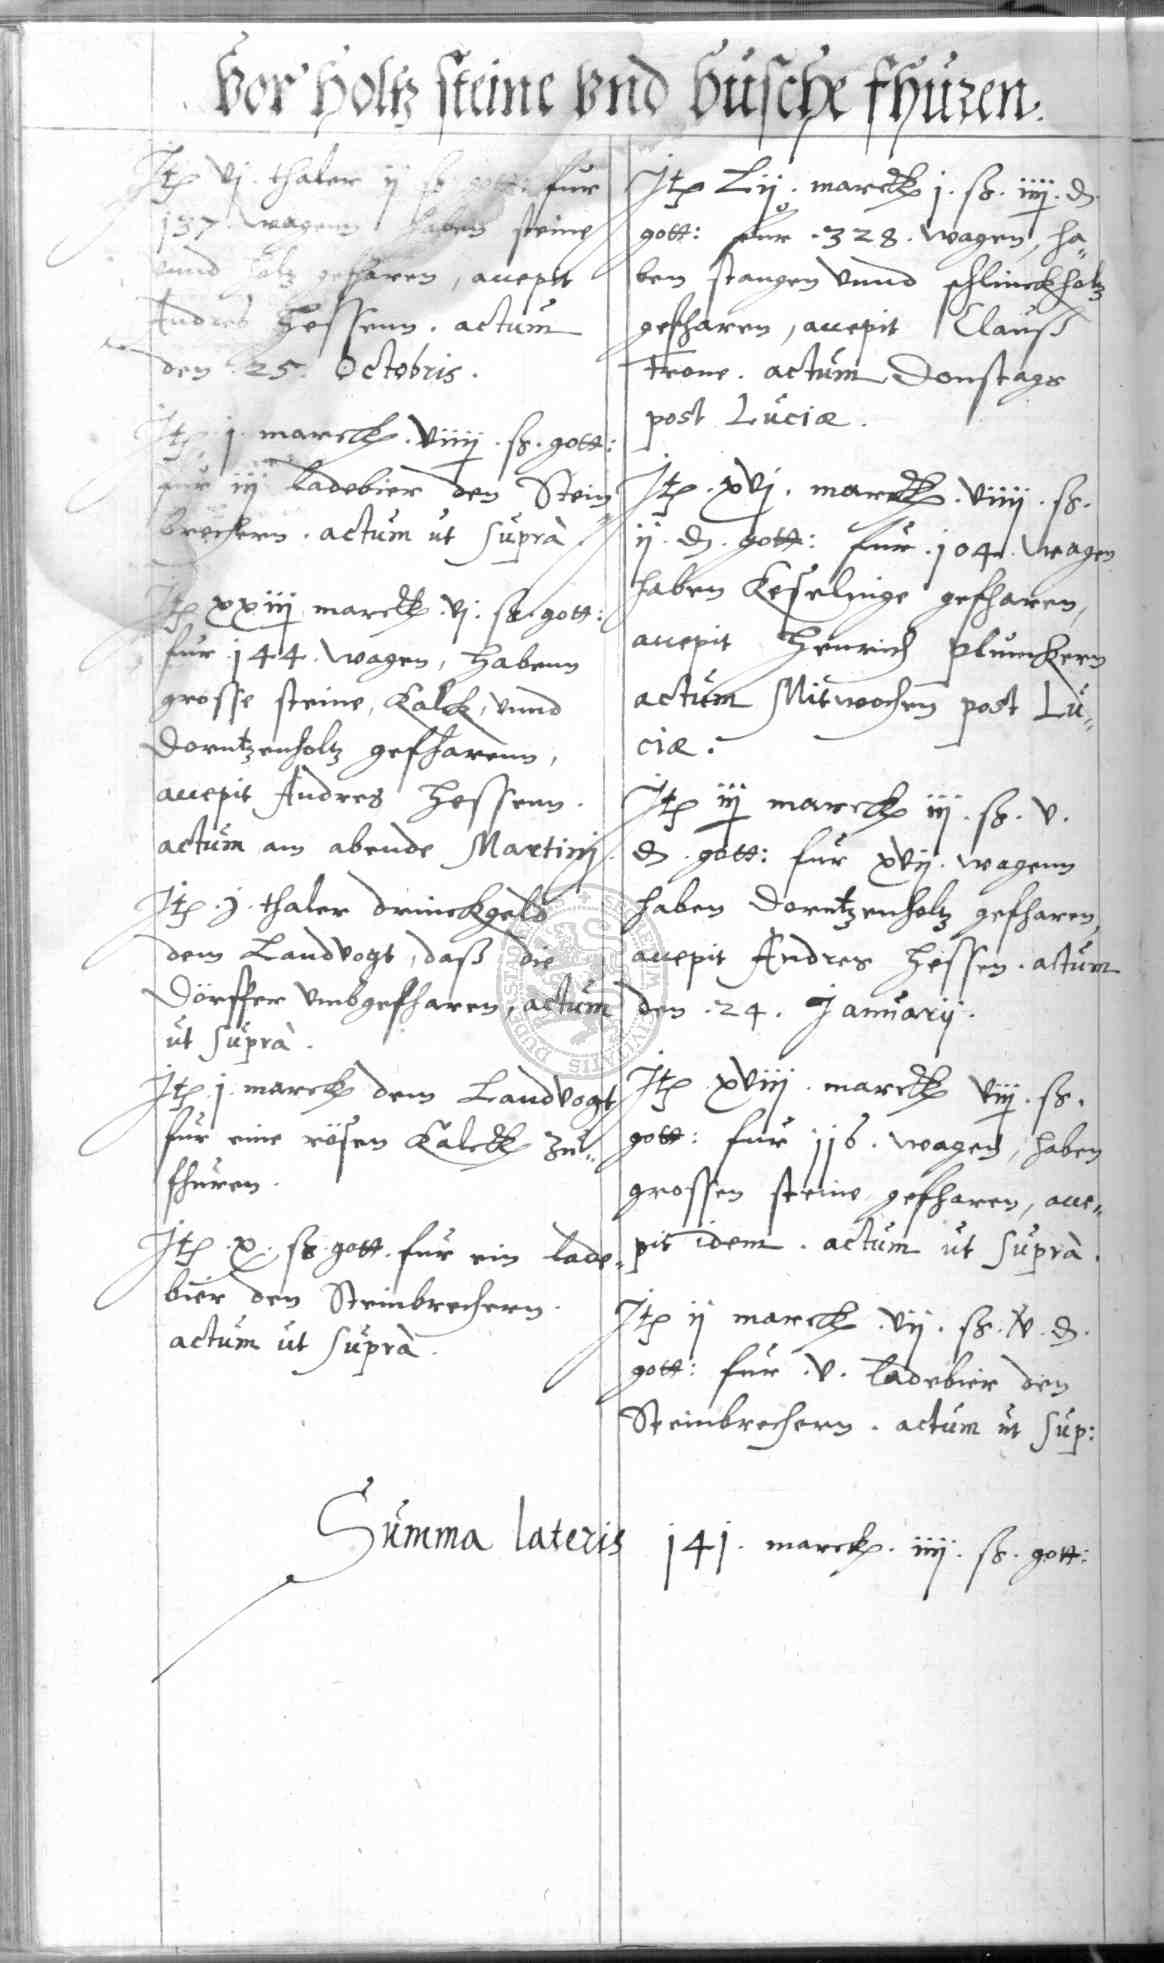 Vor Holtz steine Vnd Busche fhuren.
Itp vj. thaler ij ß gott: fur
137. wagenn haben steine
vnnd holtz gefharen, accepit
Andres Hessenn. actum
den .25. Octobris.
Itp .j. marck. viiij. ß. gott:
fur iij ladebier den Stein
brechern. actum ut suprà
Itp xxiij marck. vj. ß. gott:
fur .144. wagen, habenn
grosse steine, Kalck, vnnd
Dorntzenholtz gefharenn,
accepit Andres Hessenn.
actum am abende Martinj.
Itp .j. thaler drinckgeld
dem Landvogt, daß die
Dörffer vmbgefharen, actum
ut suprà.
Itp .j. marck dem Landvogt
fur eine rösen Kalck zu=
fhuren.
Itp .x. ß gott. fur ein lade=
bier den Steinbrechern.
actum ut suprà.
Itp Lij. marck j. ß. iiij. d.
gott: fur .328. wagen, ha=
ben stangen vnnd schlinckholtz
gefharen, accepit Clauß
Trone. actum Donstags
post Luciæ.
Itp .xvj. marck. viiij. ß.
ij. d. gott: fur .104. wagen
haben Keselinge gefharen,
accepit Henrich Plunckern
actum Mitwochen post Lu=
ciæ.
Itp iij marck iij. ß. v.
d. gott: fur xvij. wagenn
haben Dorntzenholtz gefharen,
accepit Andres Hessen. actum
den .24. Januarij.
Itp xviij. marck viij. ß.
gott: fur 116. wagen, haben
grossen steine gefharen, acce=
pit idem. actum ut suprà.
Itp ij marck .vij. ß. v. d.
gott: fur .v. ladebier den
Steinbrechern. actum ut sup:
Summa lateris 141. marck. iiij. ß. gott: